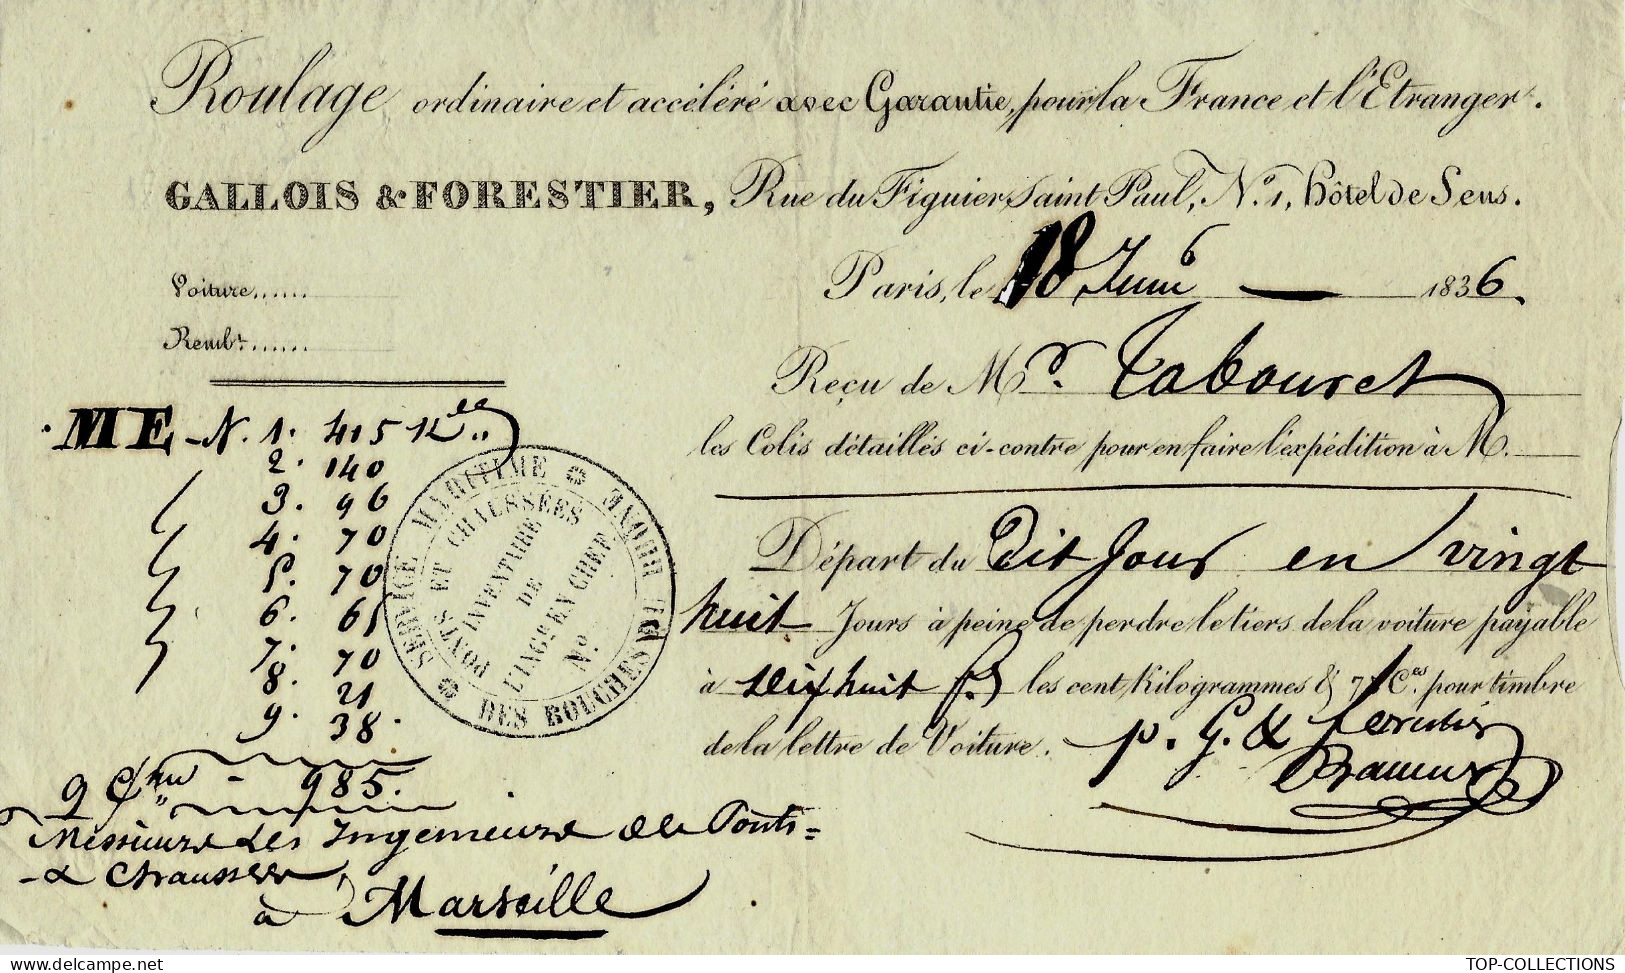 Roulage ordinaire et accéléré avec Garantie, pour la France et l'Etranger.
GALLOIS & FORESTIER, Rue du Figuier Saint Paul, N.° 1, hôtel de Sens.
Paris, le 18 Juin 1836.
Voiture......
Remb.t......
Reçu de M.r Tabouret
les Colis détaillés ci-contre pour en faire l'expédition à M.
Départ du Dit Jour en vingt
huit Jours à peine de perdre le tiers de la voiture payable
à dix huit f.s les cent Kilogrammes & 75 C.es pour timbre
de la lettre de Voiture. p. G. & Forestier
ME - N. 1. 415 K.
2. 140
3. 96
4. 70
5. 70
6. 65
7. 70
8. 21
9. 38.
9 985.
Messieurs Les Ingenieurs de Ponts =
- & Chaussées,
à Marseille
SERVICE MARITIME MAJOR RHONE
DES BOUCHES DU
PONTS ET CHAUSSÉES
INVENTAIRE
DE
L'INGR EN CHEF
N°
TOP-COLLECTIONS
delcampe.net